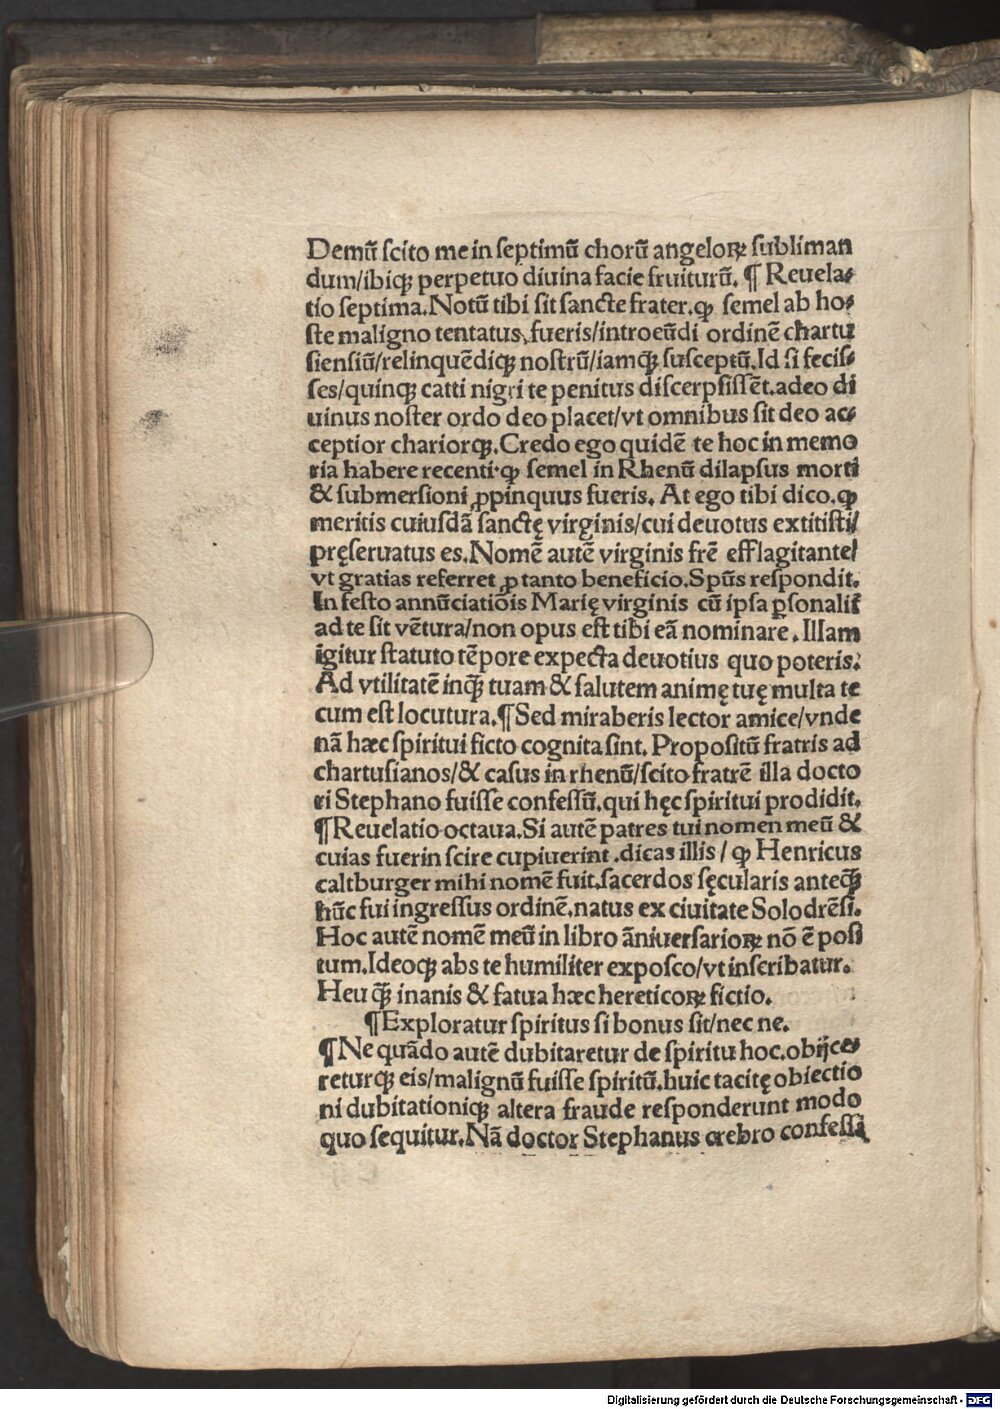 Demũ ſcito me in ſeptimũ chorũ angeloꝝ ſubliman
dum/ibiqꝫ perpetuo diuina facie fruiturũ. ¶ Reuela⸗
tio ſeptima. Notũ tibi ſit ſancte frater. ꝙ ſemel ab ho⸗
ſte maligno tentatus, fueris/introeũdi ordinẽ chartu
ſienſiũ/relinquẽdiqꝫ noſtrũ/iamqꝫ̃ ſuſceptũ. Id ſi feciſ⸗
ſes/quinqꝫ catti nigri te penitus diſcerpſiſſẽt. adeo di
uinus noſter ordo deo placet/vt omnibus ſit deo ac⸗
ceptior chariorqꝫ. Credo ego quidẽ te hoc in memo
ria habere recenti· ꝙ ſemel in Rhenũ dilapſus morti
& ſubmerſioni ꝓpinquus fueris. At ego tibi dico. ꝙ
meritis cuiuſdã ſanctę virginis/cui deuotus extitiſti/
pręſeruatus es. Nomẽ autẽ virginis frẽ efflagitante/
vt gratias referret ꝓ tanto beneficio. Spũs reſpondit.
In feſto annũciatiõis Marię virginis cũ ipſa ꝑſonalit̃
ad te ſit vẽtura/non opus eſt tibi eã nominare. Illam
igitur ſtatuto tẽpore expecta deuotius quo poteris.
Ad vtilitatẽ inqꝫ̃ tuam & ſalutem animę tuę multa te
cum eſt locutura. ¶ Sed miraberis lector amice/vnde
nã hæc ſpiritui ficto cognita ſint. Propoſitũ fratris ad
chartuſianos/& caſus in rhenũ/ſcito fratrẽ illa docto
ri Stephano fuiſſe confeſſũ. qui hęc ſpiritui prodidit.
¶ Reuelatio octaua. Si autẽ patres tui nomen meũ &
cuias fuerin ſcire cupiuerint. dicas illis/ ꝙ Henricus
caltburger mihi nomẽ fuit. ſacerdos ſęcularis anteqꝫ̃
hũc fui ingreſſus ordinẽ. natus ex ciuitate Solodrẽſi.
Hoc autẽ nomẽ meũ in libro ãniuerſarioꝝ nõ ẽ poſi
tum. Ideoqꝫ abs te humiliter expoſco/vt inſcribatur.
Heu qꝫ̃ inanis & fatua hæc hereticoꝝ fictio.
¶ Exploratur ſpiritus ſi bonus ſit/nec ne.
¶ Ne quãdo autẽ dubitaretur de ſpiritu hoc. obijce⸗
returqꝫ eis/malignũ fuiſſe ſpiritũ. huic tacitę obiectio
ni dubitationiqꝫ altera fraude reſponderunt modo
quo ſequitur. Nã doctor Stephanus crebro confeſſã
Digitalisierung gefördert durch die Deutsche Forschungsgemeinschaft - DFG